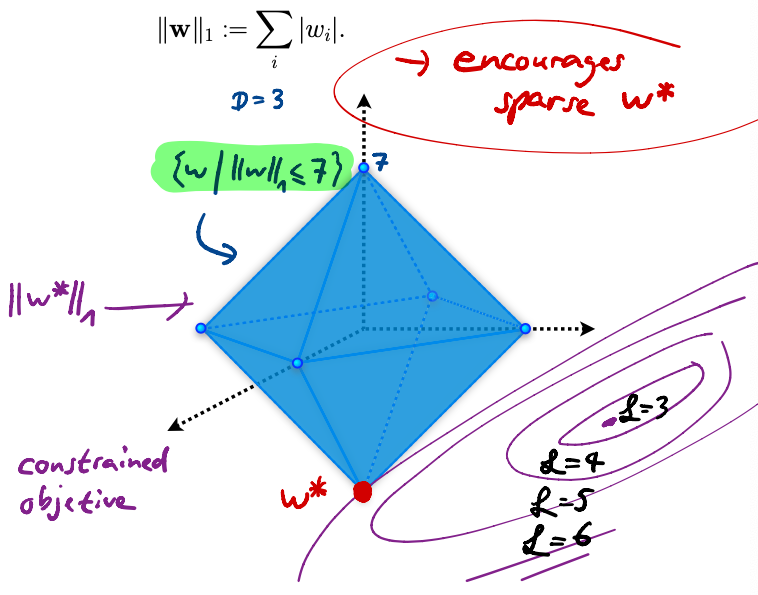 ‖w‖₁ := ∑ᵢ |wᵢ|.
→ encourages
sparse w*
D=3
7
{w | ‖w‖₁ ≤ 7}
‖w*‖₁
L=3
L=4
constrained
objetive
w*
L=5
L=6